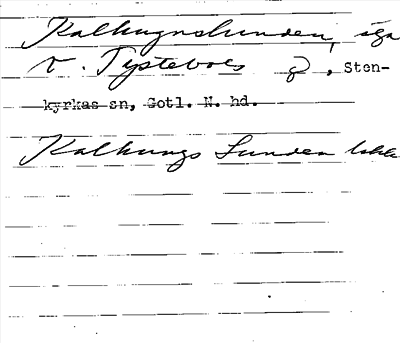 Kalhugnslunden, äga
v. Tystebols g, Sten-
kyrkas sn, Gotl. N. hd.
Kalhungs Lunden